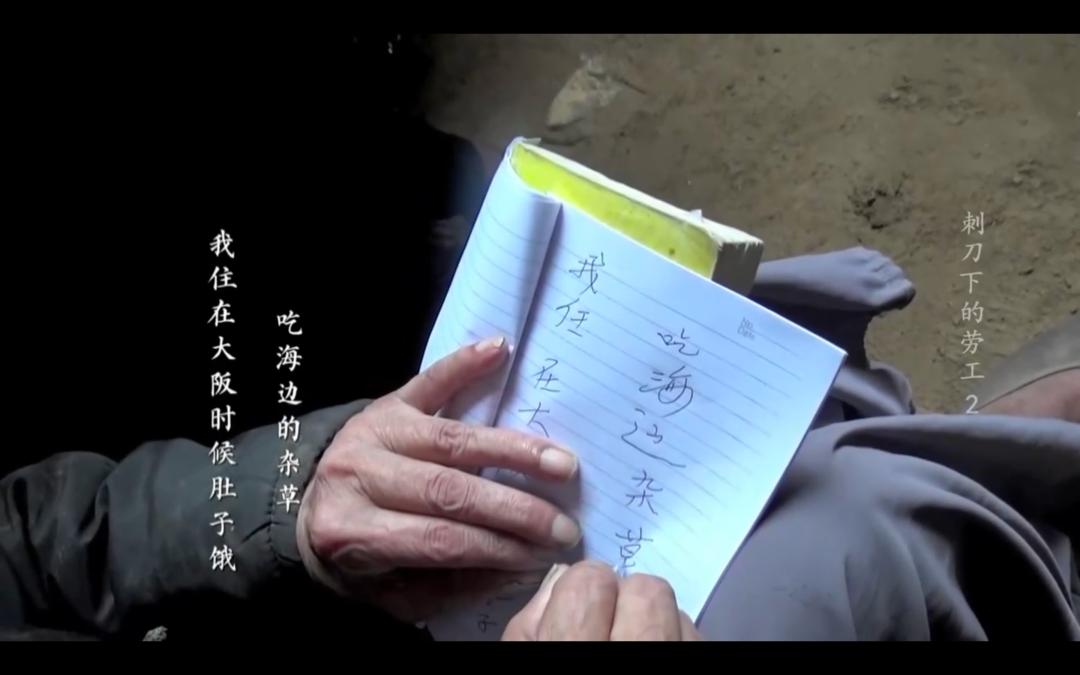 我住在大阪时候肚子饿
吃海边的杂草
我住在大
子
吃海边杂草
No.
Date
刺刀下的劳工2